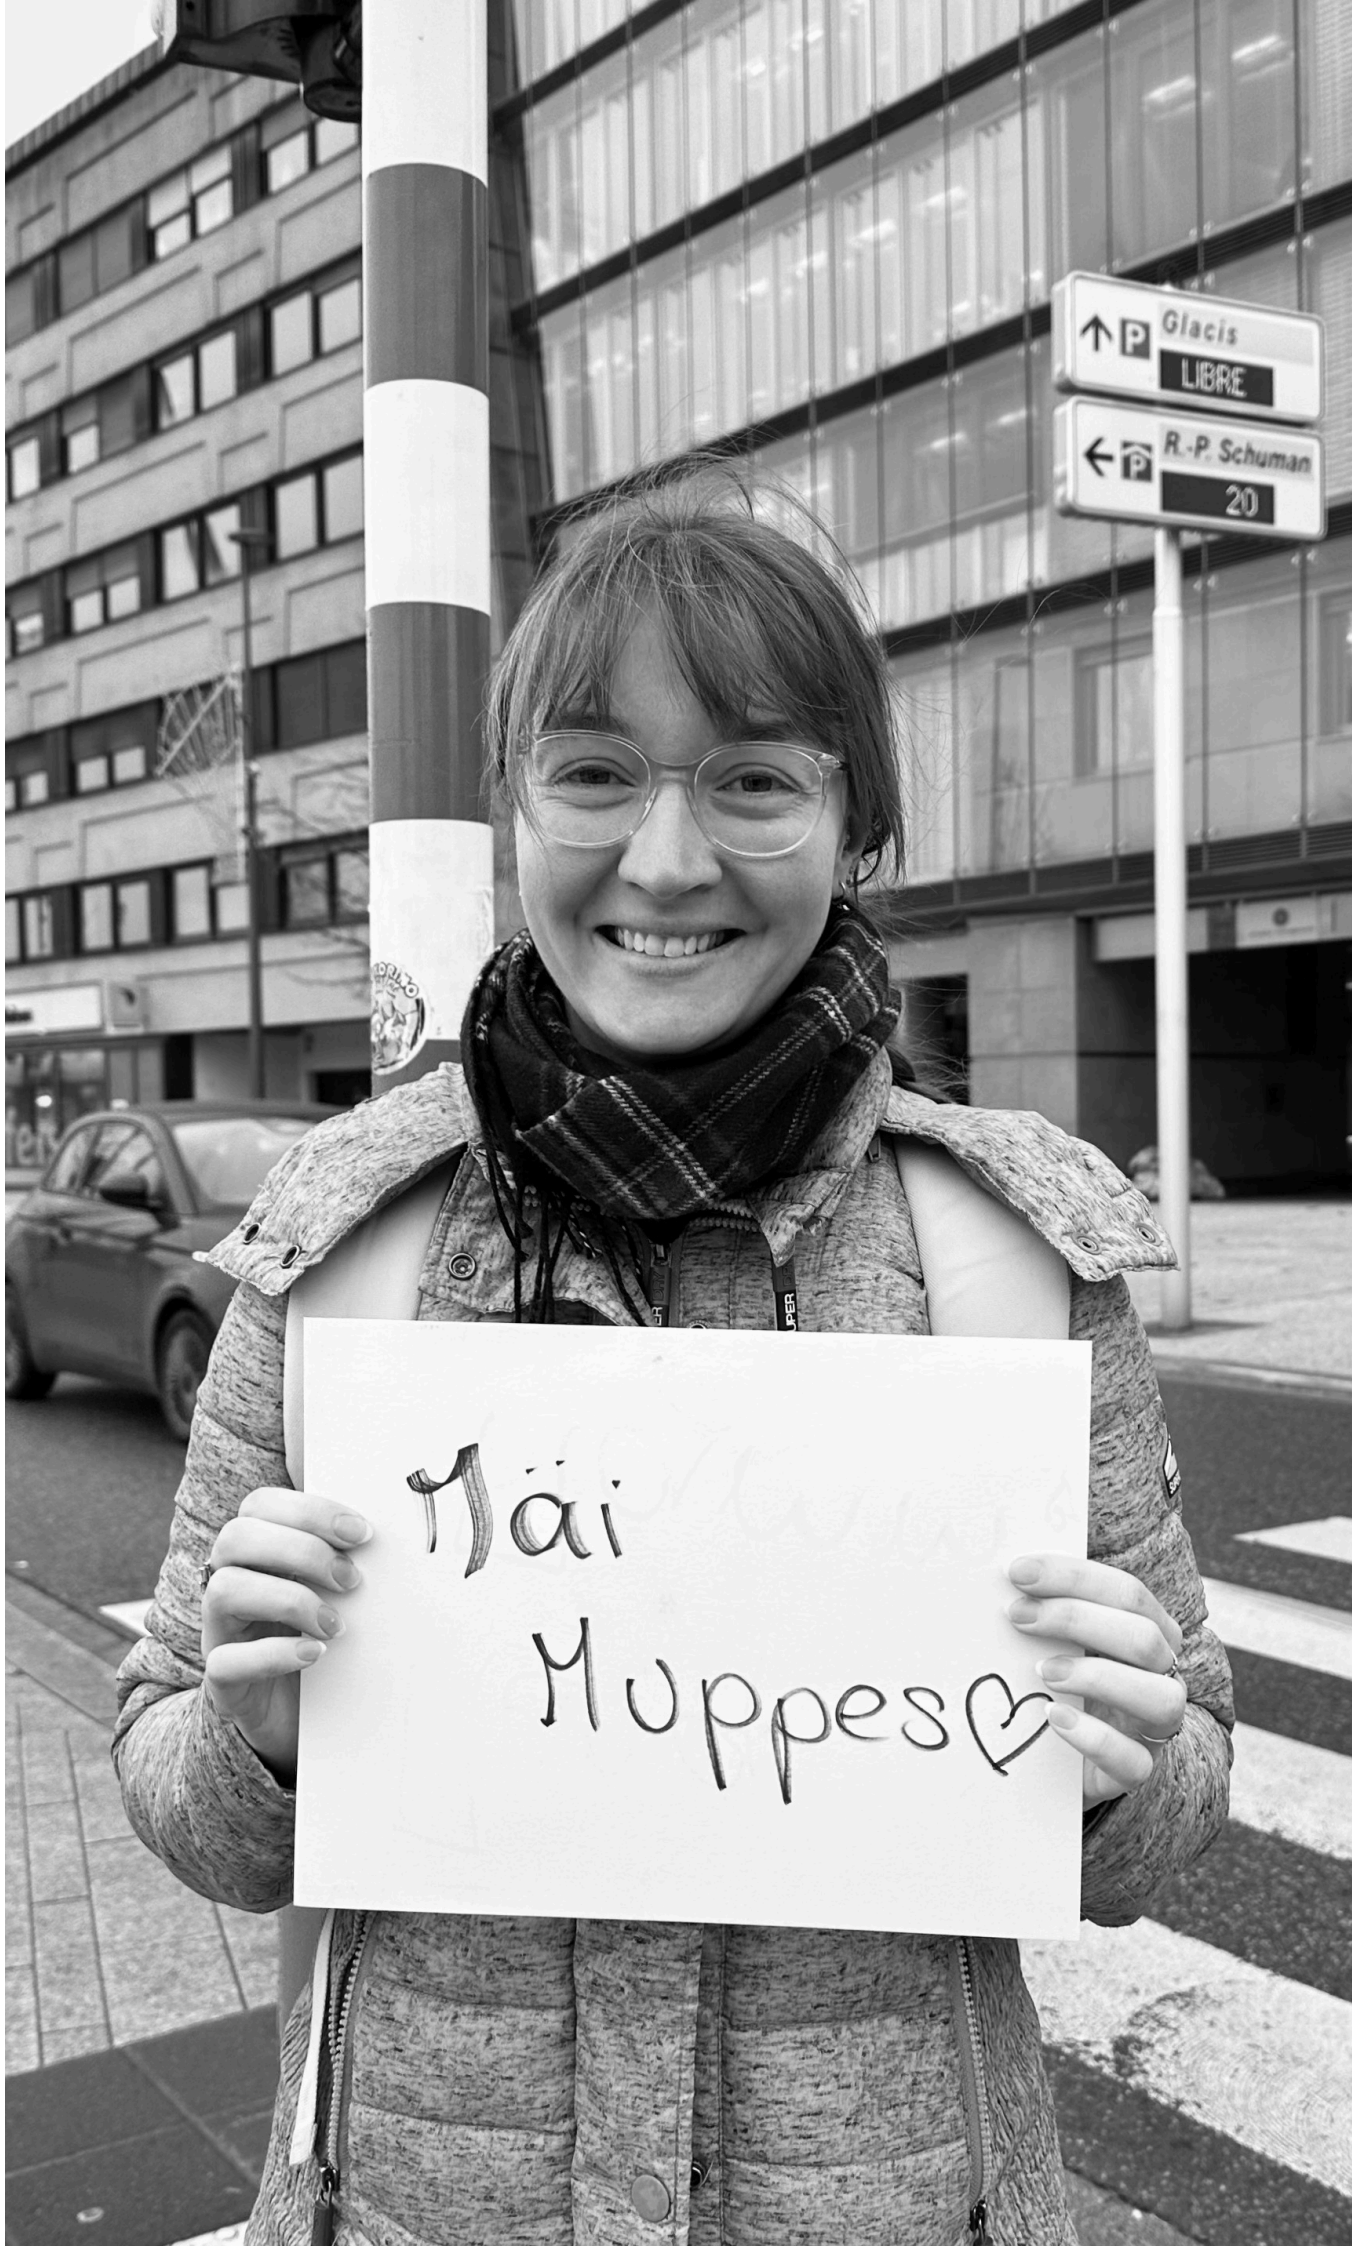 P Glacis
LIBRE
P R.-P. Schuman
20
UPER
Mäi
Muppes♡